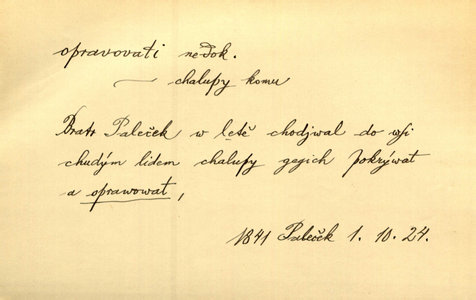 opravovati nedok.
— chalupy komu
Bratr Paleček w letě chodjwal do wsi
chudým lidem chalupy gegich pokrýwat
a oprawowat,
1841 Paleček 1. 10. 24.